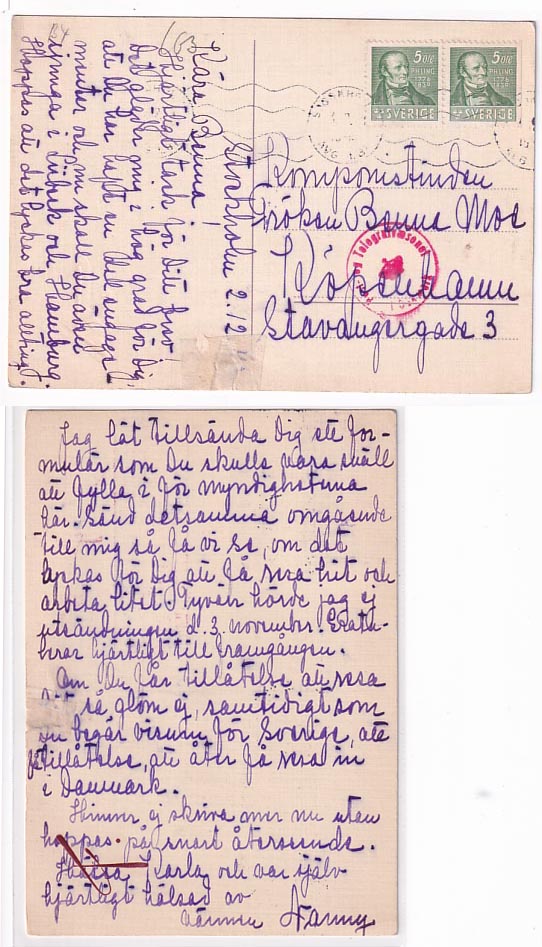 5 ÖRE
P H LING
1776
1839
SVERIGE
5 ÖRE
P H LING
1776
1839
SVERIGE
Komponistinden
Fröken Benna Moe
Köpenhamn
Stavangergade 3
Stockholm 2.12
Kära Benna!
Hjärtligt tack för Ditt brev
Det gläder mig i hög grad för Dig,
att Du har haft en del engage-
menter och om skall Du även
sjunga i Lübeck och Hamburg.
Hoppas att det lyckas bra alltihop.
Jag låt tillsända Dig ett for-
mulär som Du skulle vara snäll
att fylla i för myndigheterna
här. Sänd detsamma omgående
till mig så få vi se, om det
lyckas för Dig att få resa hit och
arbeta litet. Tyvärr hörde jag ej
utsändningen d. 3. november. Gratu-
lerar hjärtligt till framgången.
Om Du får tillåtelse att resa
hit så glöm ej, samtidigt som
Du begär visum för Sverige, att
få tillåtelse, att åter få resa in
i Danmark.
Hinner ej skriva mer nu utan
hoppas på snart återseende.
Hälsa Karla och var själv
hjärtligt hälsad av
vännen Fanny